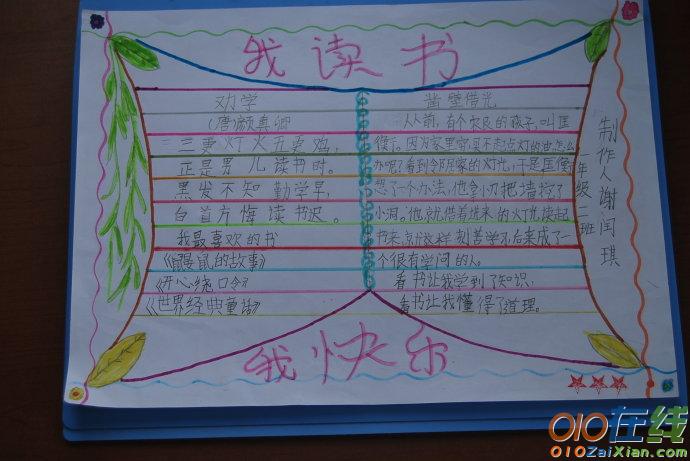 我读书
劝学
(唐颜真卿
三更灯火五更鸡,
正是男儿读书时。
黑发不知勤学早,
白首方悔读书迟。
我最喜欢的书
《鼹鼠的故事》
《开心绕口令》
《世界经典童话》
凿壁借光
人前,有个农民的孩子,叫匡
衡了。因为家里穷,买不起点灯的油,怎么
办呢?看到令阝居家的灯光,于是匡衡
想了一个办法,他拿刀把墙挖了
小洞。他就借着进来的灯光读起
书来,就这样刻苦学习,后来成了一
个很有学问的人。
看书让我学到了知识,
看书让我懂得了道理。
年级二班
制作人谢闰琪
我快乐
010在线
010ZaiXian.com